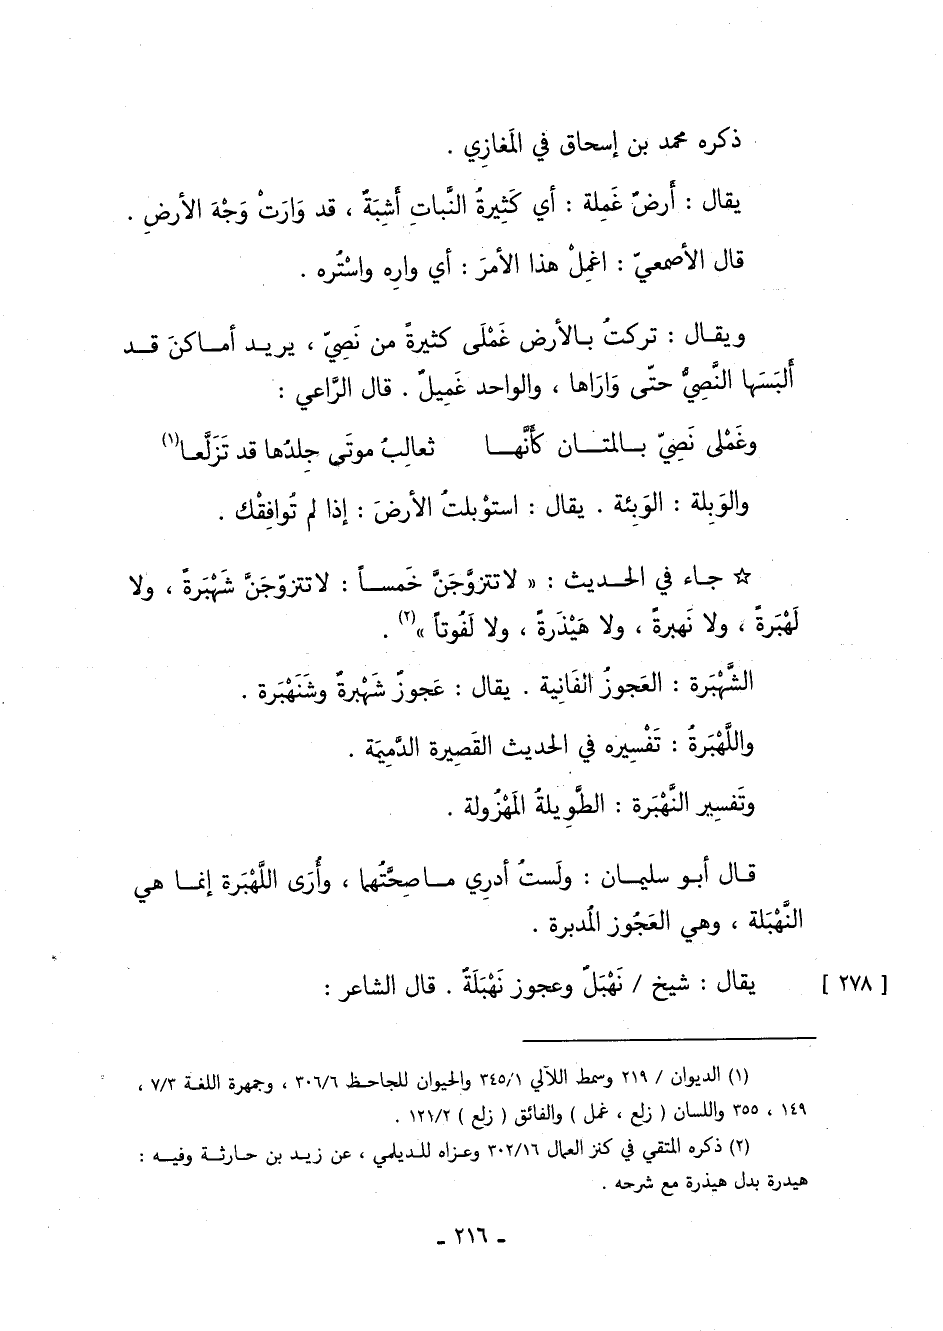 ذكره محمد بن إسحاق في المَغازِي .
يقال : أَرضٌ غَمِلة : أي كَثِيرةُ النَّباتِ أَشِبَةٌ ، قد وَارَتْ وَجْهَ الأرضِ .
قال الأصمعيّ : اغمِلْ هذا الأمرَ : أي وارِه واسْتُره .
ويقال : تركتُ بالأرض غَمْلَى كثيرةً من نَصِيّ ، يريد أماكنَ قد
أَلبَسَها النَّصِيُّ حتّى وَارَاها ، والواحد غَمِيلٌ . قال الرَّاعي :
وغَمْلى نَصِيّ بالمتان كأَنَّها ثعالِبُ موتَى جِلدُها قد تَزَلَّعا(١)
والوَبِلة : الوَبِئة . يقال : استوْبلتُ الأرضَ : إذا لم تُوافِقْك .
☆ جاء في الحديث : « لا تتزوَّجَنَّ خَمساً : لا تتزوّجَنَّ شَهْبَرةً ، ولا
لَهْبَرةً ، ولا نَهبرةً ، ولا هَيْذَرةً ، ولا لَفُوتاً »(٢) .
الشَّهْبَرة : العَجوزُ الفَانِية . يقال : عَجوزٌ شَهْبرةٌ وشَنَهْبَرة .
واللَّهْبَرةُ : تَفْسِيره في الحديث القَصِيرة الدَّمِيَمة .
وتَفسِير النَّهْبَرة : الطَّوِيلةُ المَهْزُولة .
قال أبو سليمان : ولَستُ أدرِي ما صِحَّتُها ، وأُرَى اللَّهْبَرة إنما هي
النَّهْبَلة ، وهي العَجُوز المُدبرة .
يقال : شيخ / نَهْبَلٌ وعجوز نَهْبَلَةٌ . قال الشاعر : [ ٢٧٨ ]
(١) الديوان / ٢١٩ وسمط اللآلي ٣٤٥/١ والحيوان للجاحظ ٣٠٦/٦ ، وجمهرة اللغة ٧/٣ ،
١٤٩ ، ٣٥٥ واللسان ( زلع ، غمل ) والفائق ( زلع ) ١٢١/٢ .
(٢) ذكره المتقي في كنز العمال ٣٠٢/١٦ وعزاه للديلمي ، عن زيد بن حارثة وفيه :
هيدرة بدل هيذرة مع شرحه .
- ٢١٦ -